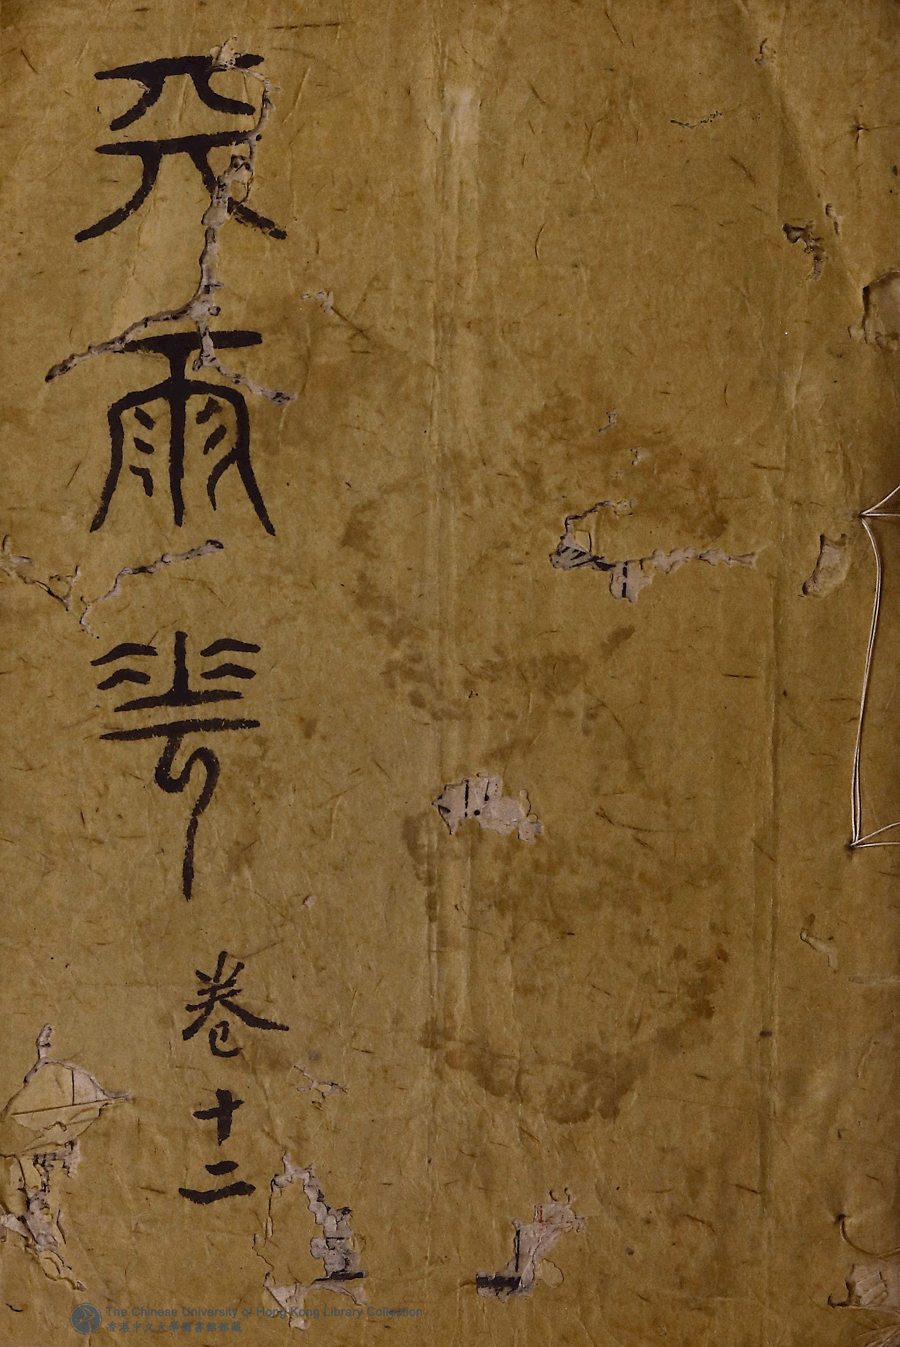 天雨花
卷十二
The Chinese University of Hong Kong Library Collection
香港中文大學圖書館館藏